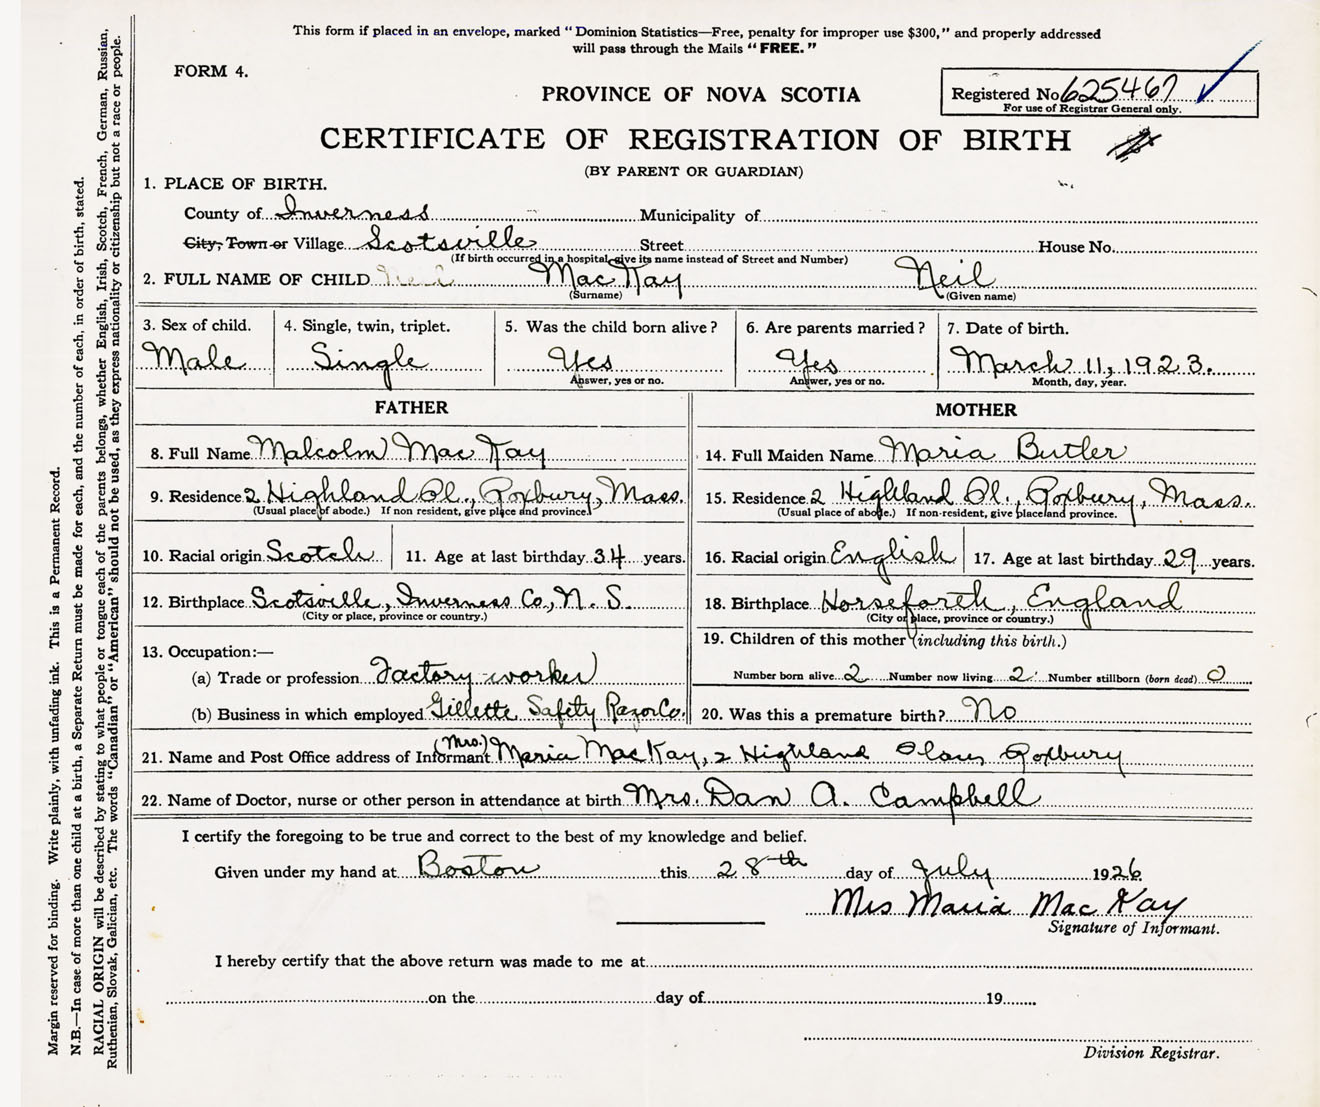 This form if placed in an envelope, marked "Dominion Statistics—Free, penalty for improper use $300," and properly addressed
will pass through the Mails "FREE."
FORM 4.
Registered No 625467
For use of Registrar General only.
PROVINCE OF NOVA SCOTIA
CERTIFICATE OF REGISTRATION OF BIRTH
(BY PARENT OR GUARDIAN)
1. PLACE OF BIRTH.
County of Inverness Municipality of
City, Town or Village Scotsville Street House No.
(If birth occurred in a hospital give its name instead of Street and Number)
2. FULL NAME OF CHILD Neil MacKay Neil
(Surname) (Given name)
3. Sex of child. 4. Single, twin, triplet. 5. Was the child born alive? 6. Are parents married? 7. Date of birth.
Male Single Yes Yes March 11, 1923.
Answer, yes or no. Answer, yes or no. Month, day, year.
FATHER
8. Full Name Malcolm MacKay
9. Residence 2 Highland Pl., Roxbury, Mass.
(Usual place of abode.) If non resident, give place and province.
10. Racial origin Scotch 11. Age at last birthday 34 years.
12. Birthplace Scotsville, Inverness Co., N. S.
(City or place, province or country.)
13. Occupation:—
(a) Trade or profession Factory-worker
(b) Business in which employed Gillette Safety Razor Co.
MOTHER
14. Full Maiden Name Maria Butler
15. Residence 2 Highland Pl., Roxbury, Mass.
(Usual place of abode.) If non-resident, give place and province.
16. Racial origin English 17. Age at last birthday 29 years.
18. Birthplace Horseforth, England
(City or place, province or country.)
19. Children of this mother (including this birth.)
Number born alive 2 Number now living 2 Number stillborn (born dead) 0
20. Was this a premature birth? No
21. Name and Post Office address of Informant (Mrs.) Maria MacKay, 2 Highland Place Roxbury
22. Name of Doctor, nurse or other person in attendance at birth Mrs. Dan A. Campbell
I certify the foregoing to be true and correct to the best of my knowledge and belief.
Given under my hand at Boston this 28th day of July 1926
Mrs Maria MacKay
Signature of Informant.
I hereby certify that the above return was made to me at
on the day of 19
Division Registrar.
Margin reserved for binding. Write plainly, with unfading ink. This is a Permanent Record.
N.B.—In case of more than one child at a birth, a Separate Return must be made for each, and the number of each, in order of birth, stated.
RACIAL ORIGIN will be described by stating to what people or tongue each of the parents belongs, whether English, Irish, Scotch, French, German, Russian,
Ruthenian, Slovak, Galician, etc. The words "Canadian" or "American" should not be used, as they express nationality or citizenship but not a race or people.